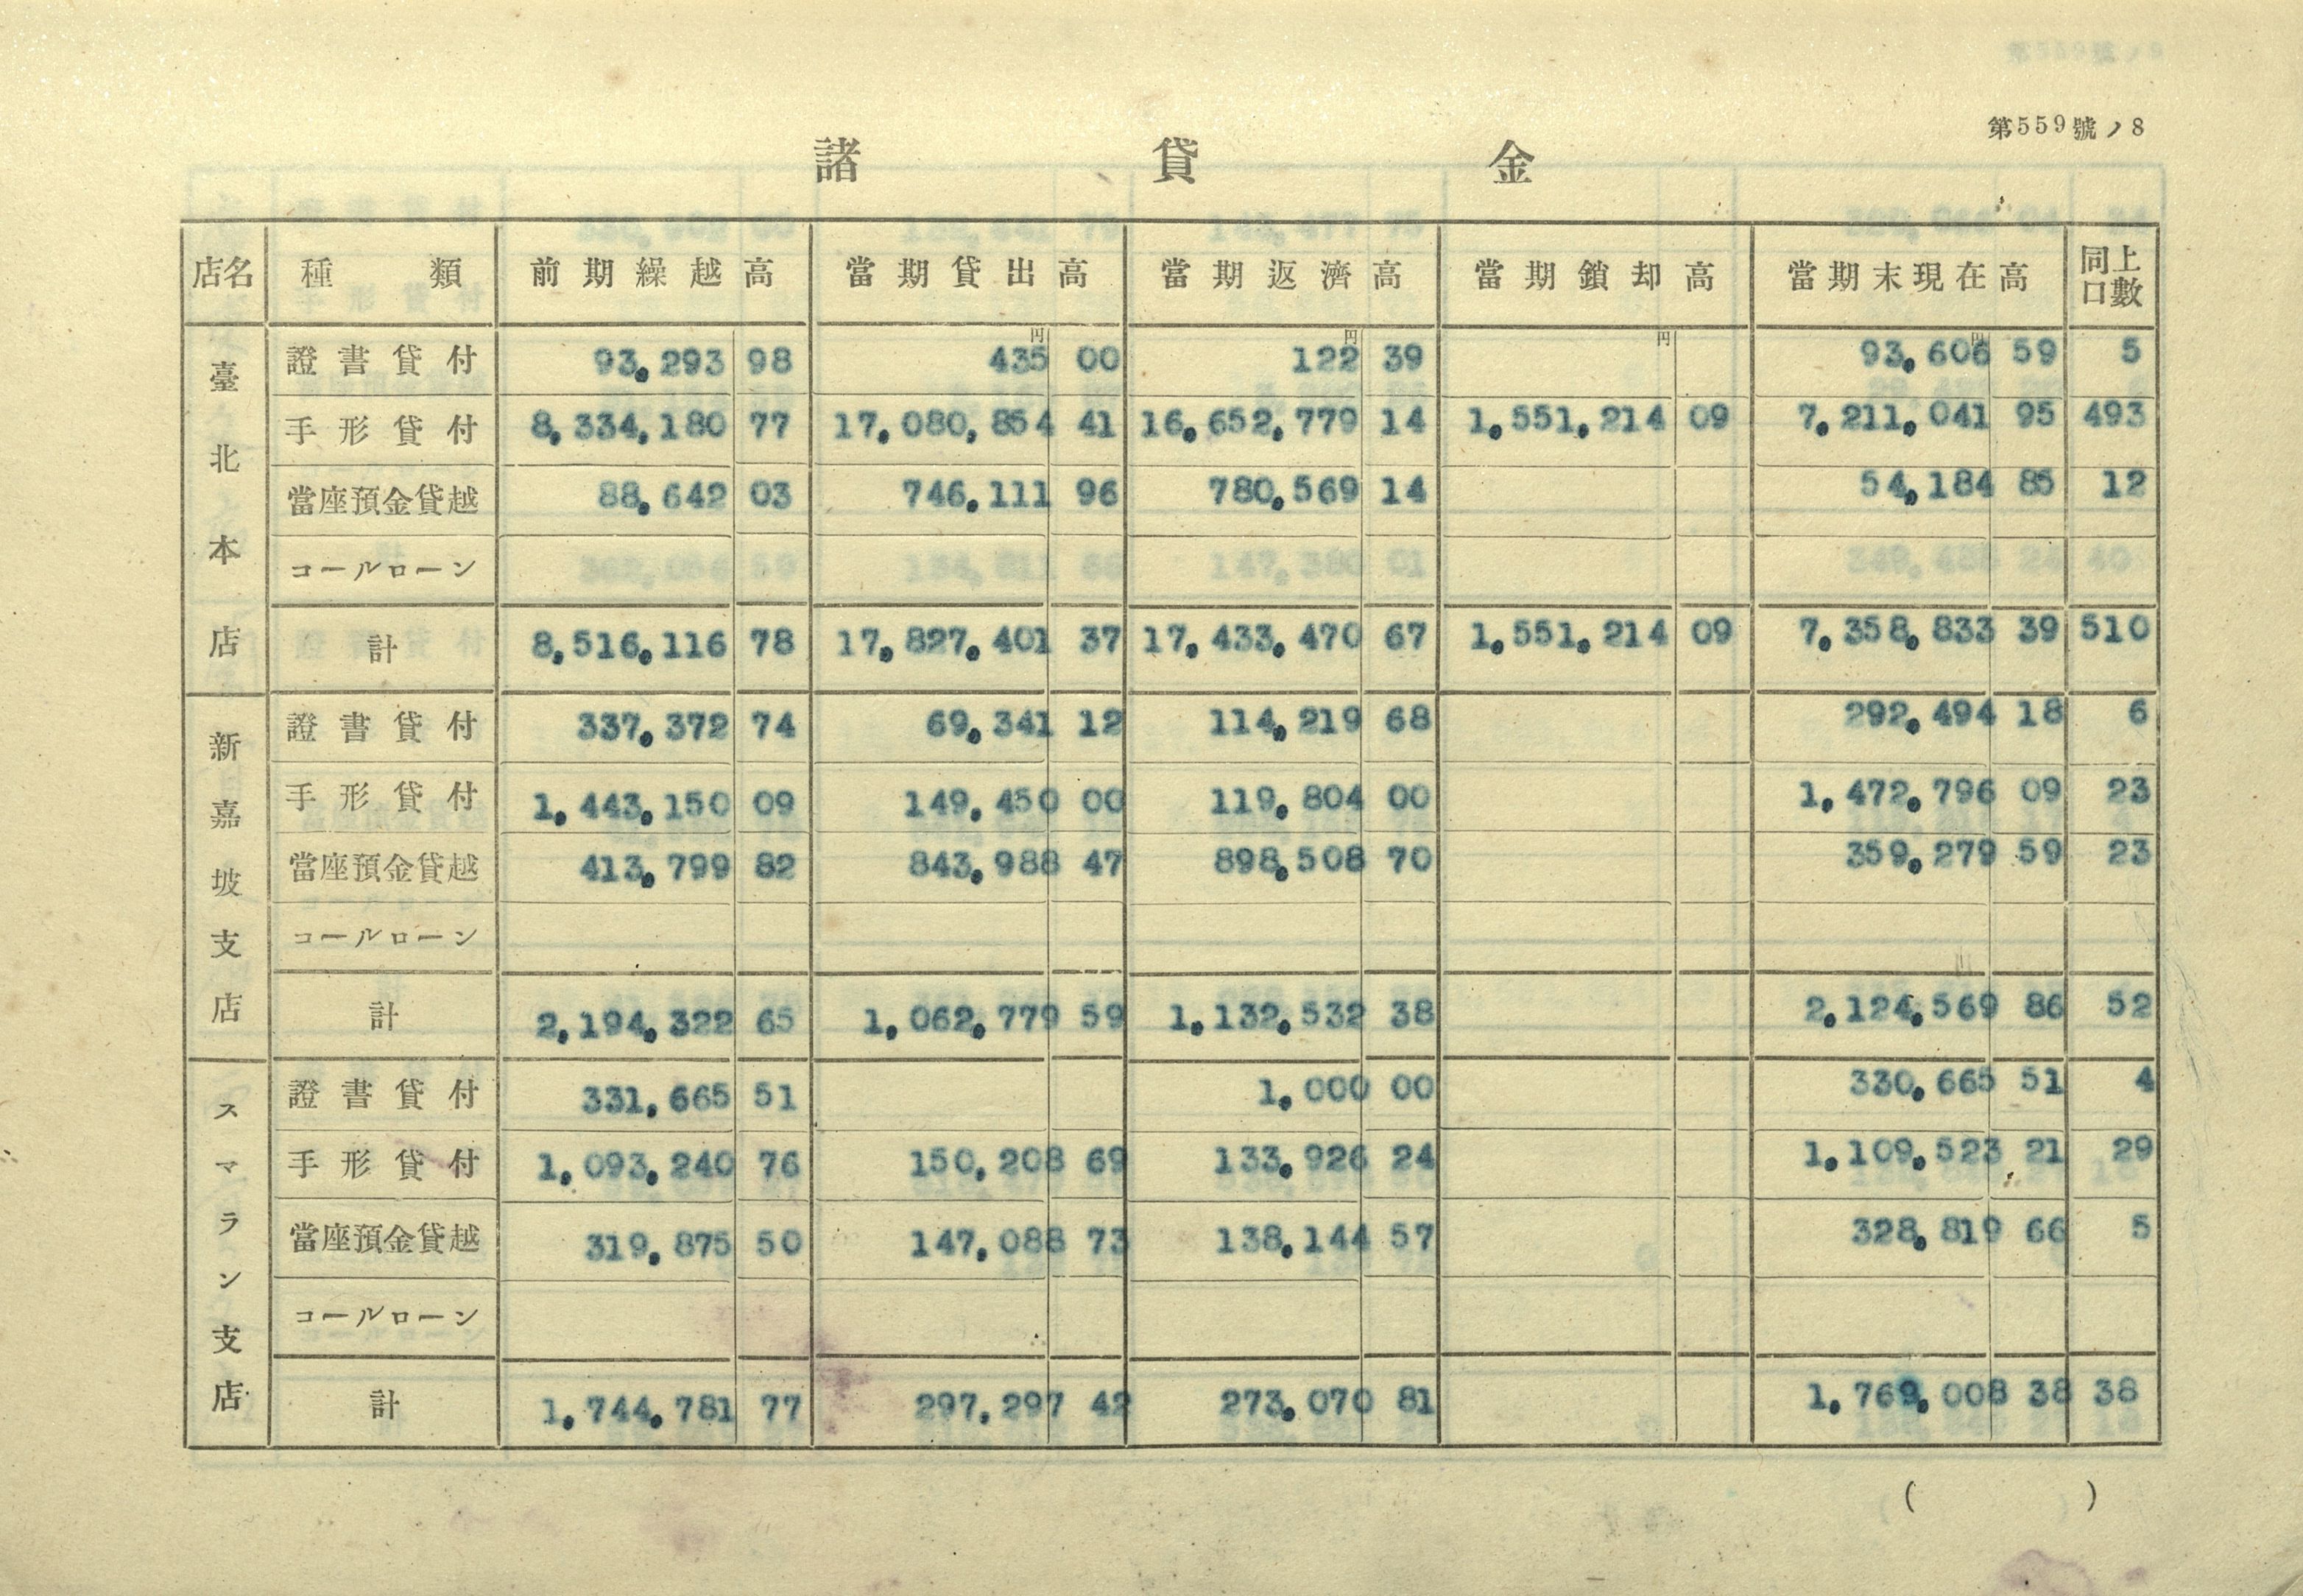 第559號ノ8
諸貸金
店名 種類 前期繰越高 當期貸出高 當期返濟高 當期鎖却高 當期末現在高 同上口數
円 円 円 円
臺北本店
證書貸付 93,293 98 435 00 122 39 93,606 59 5
手形貸付 8,334,180 77 17,080,854 41 16,652,779 14 1,551,214 09 7,211,041 95 493
當座預金貸越 88,642 03 746,111 96 780,569 14 54,184 85 12
コールローン
計 8,516,116 78 17,827,401 37 17,433,470 67 1,551,214 09 7,358,833 39 510
新嘉坡支店
證書貸付 337,372 74 69,341 12 114,219 68 292,494 18 6
手形貸付 1,443,150 09 149,450 00 119,804 00 1,472,796 09 23
當座預金貸越 413,799 82 843,988 47 898,508 70 359,279 59 23
コールローン
計 2,194,322 65 1,062,779 59 1,132,532 38 2,124,569 86 52
スマラン支店
證書貸付 331,665 51 1,000 00 330,665 51 4
手形貸付 1,093,240 76 150,208 69 133,926 24 1,109,523 21 29
當座預金貸越 319,875 50 147,088 73 138,144 57 328,819 66 5
コールローン
計 1,744,781 77 297,297 42 273,070 81 1,769,008 38 38
( )